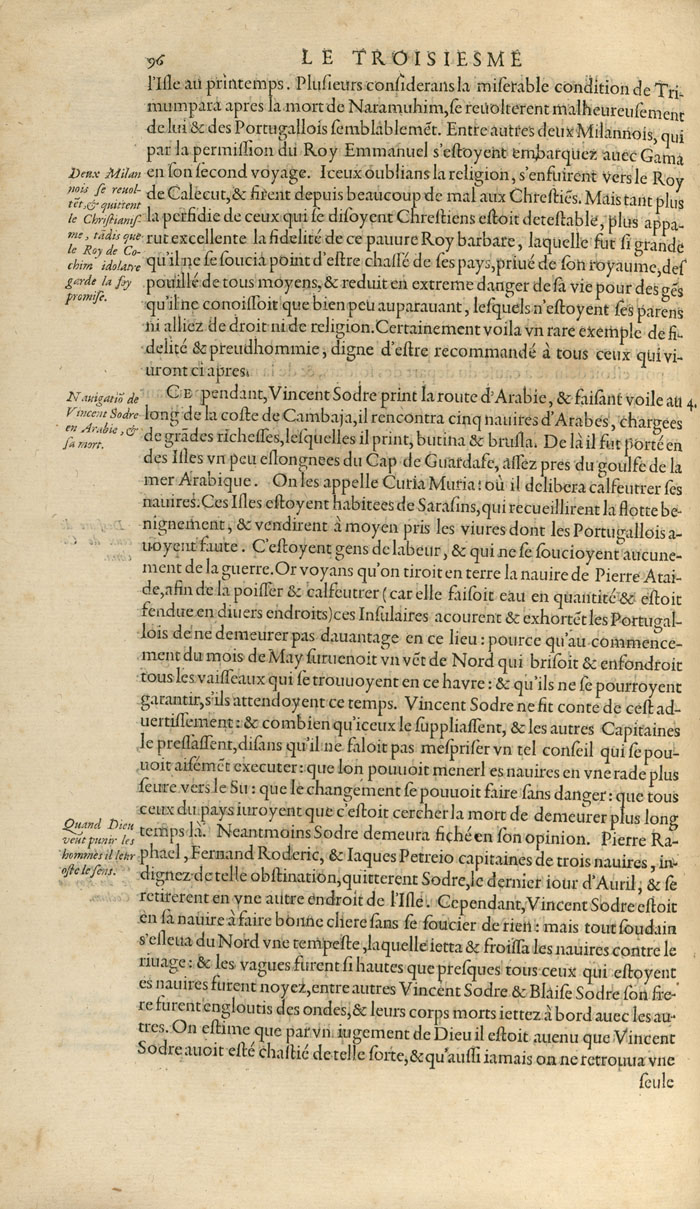 96 LE TROISIESME
l'Isle au printemps. Plusieurs considerans la miserable condition de Tri-
mumpara apres la mort de Naramuhim, se reuolterent malheureusement
de lui & des Portugallois semblablemēt. Entre autres deux Milannois, qui
par la permission du Roy Emmanuel s'estoyent embarquez auec Gama
en son second voyage. Iceux oublians la religion, s'enfuirent vers le Roy
de Calecut, & firent depuis beaucoup de mal aux Chrestiēs. Mais tant plus
la perfidie de ceux qui se disoyent Chrestiens estoit detestable, plus appa-
rut excellente la fidelité de ce pauure Roy barbare, laquelle fut si grande
qu'il ne se soucia point d'estre chassé de ses pays, priué de son royaume, des
pouillé de tous moyens, & reduit en extreme danger de sa vie pour des gēs
qu'il ne conoissoit que bien peu auparauant, lesquels n'estoyent ses parens
ni alliez de droit ni de religion. Certainement voila vn rare exemple de fi-
delité & preudhommie, digne d'estre recommandé à tous ceux qui vi-
uront ci apres.
Deux Milan
nois se reuol-
tēt, & quittent
le Christianis
me, tādis que
le Roy de Co-
chim idolatre
garde la foy
promise.
CE pendant, Vincent Sodre print la route d'Arabie, & faisant voile au 4.
long de la coste de Cambaja, il rencontra cinq nauires d'Arabes, chargees
de grādes richesses, lesquelles il print, butina & brusla. De là il fut porté en
des Isles vn peu eslongnees du Cap de Guardafe, assez pres du goulfe de la
mer Arabique. On les appelle Curia Muria: où il delibera calfeutrer ses
nauires. Ces Isles estoyent habitees de Sarasins, qui recueillirent la flotte be-
nignement, & vendirent à moyen pris les viures dont les Portugallois a-
uoyent faute. C'estoyent gens de labeur, & qui ne se soucioyent aucune-
ment de la guerre. Or voyans qu'on tiroit en terre la nauire de Pierre Atai-
de, afin de la poisser & calfeutrer (car elle faisoit eau en quantité & estoit
fendue en diuers endroits) ces Insulaires acourent & exhortēt les Portugal-
lois de ne demeurer pas dauantage en ce lieu: pource qu'au commence-
ment du mois de May suruenoit vn vēt de Nord qui brisoit & enfondroit
tous les vaisseaux qui se trouuoyent en ce havre: & qu'ils ne se pourroyent
garantir, s'ils attendoyent ce temps. Vincent Sodre ne fit conte de cest ad-
uertissement: & combien qu'iceux le suppliassent, & les autres Capitaines
le pressassent, disans qu'il ne faloit pas mespriser vn tel conseil qui se pou-
uoit aisémēt executer: que lon pouuoit mener l es nauires en vne rade plus
seure vers le Su: que le changement se pouuoit faire sans danger: que tous
ceux du pays iuroyent que c'estoit cercher la mort de demeurer plus long
temps là. Neantmoins Sodre demeura fiché en son opinion. Pierre Ra-
phael, Fernand Roderic, & Iaques Petreio capitaines de trois nauires, in-
dignez de telle obstination, quitterent Sodre, le dernier iour d'Auril, & se
retirerent en vne autre endroit de l'Isle. Cependant, Vincent Sodre estoit
en sa nauire à faire bonne chere sans se soucier de rien: mais tout soudain
s'esleua du Nord vne tempeste, laquelle ietta & froissa les nauires contre le
riuage: & les vagues furent si hautes que presques tous ceux qui estoyent
es nauires furent noyez, entre autres Vincent Sodre & Blaise Sodre son fre-
re furent engloutis des ondes, & leurs corps morts iettez à bord auec les au-
tres. On estime que par vn iugement de Dieu il estoit auenu que Vincent
Sodre auoit esté chastié de telle sorte, & qu'aussi iamais on ne retrouua vne
seule
Nauigatiō de
Vincent Sodre
en Arabie, &
sa mort.
Quand Dieu
veut punir les
hommes il leur
oste le sens.